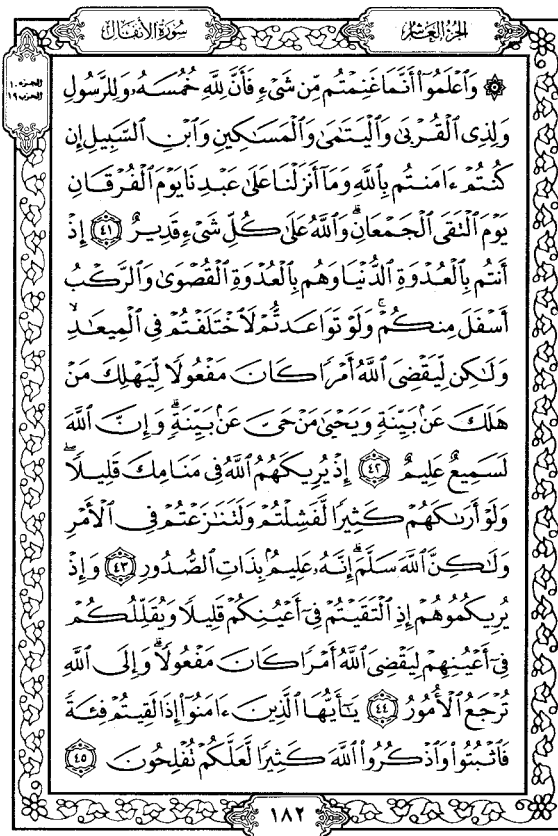 سُورَةُ الأَنفَالِ
الجُزْءُ العَاشِرُ
الجزء ١٠
الحزب ١٩
۞ وَٱعْلَمُوٓا۟ أَنَّمَا غَنِمْتُم مِّن شَىْءٍ فَأَنَّ لِلَّهِ خُمُسَهُۥ وَلِلرَّسُولِ
وَلِذِى ٱلْقُرْبَىٰ وَٱلْيَتَـٰمَىٰ وَٱلْمَسَـٰكِينِ وَٱبْنِ ٱلسَّبِيلِ إِن
كُنتُمْ ءَامَنتُم بِٱللَّهِ وَمَآ أَنزَلْنَا عَلَىٰ عَبْدِنَا يَوْمَ ٱلْفُرْقَانِ
يَوْمَ ٱلْتَقَى ٱلْجَمْعَانِ ۗ وَٱللَّهُ عَلَىٰ كُلِّ شَىْءٍ قَدِيرٌ ٤١ إِذْ
أَنتُم بِٱلْعُدْوَةِ ٱلدُّنْيَا وَهُم بِٱلْعُدْوَةِ ٱلْقُصْوَىٰ وَٱلرَّكْبُ
أَسْفَلَ مِنكُمْ ۚ وَلَوْ تَوَاعَدتُّمْ لَٱخْتَلَفْتُمْ فِى ٱلْمِيعَـٰدِ ۙ
وَلَـٰكِن لِّيَقْضِىَ ٱللَّهُ أَمْرًا كَانَ مَفْعُولًا لِّيَهْلِكَ مَنْ
هَلَكَ عَنۢ بَيِّنَةٍ وَيَحْيَىٰ مَنْ حَىَّ عَنۢ بَيِّنَةٍ ۗ وَإِنَّ ٱللَّهَ
لَسَمِيعٌ عَلِيمٌ ٤٢ إِذْ يُرِيكَهُمُ ٱللَّهُ فِى مَنَامِكَ قَلِيلًا ۖ
وَلَوْ أَرَىٰكَهُمْ كَثِيرًا لَّفَشِلْتُمْ وَلَتَنَـٰزَعْتُمْ فِى ٱلْأَمْرِ
وَلَـٰكِنَّ ٱللَّهَ سَلَّمَ ۗ إِنَّهُۥ عَلِيمٌۢ بِذَاتِ ٱلصُّدُورِ ٤٣ وَإِذْ
يُرِيكُمُوهُمْ إِذِ ٱلْتَقَيْتُمْ فِىٓ أَعْيُنِكُمْ قَلِيلًا وَيُقَلِّلُكُمْ
فِىٓ أَعْيُنِهِمْ لِيَقْضِىَ ٱللَّهُ أَمْرًا كَانَ مَفْعُولًا ۗ وَإِلَى ٱللَّهِ
تُرْجَعُ ٱلْأُمُورُ ٤٤ يَـٰٓأَيُّهَا ٱلَّذِينَ ءَامَنُوٓا۟ إِذَا لَقِيتُمْ فِئَةً
فَٱثْبُتُوا۟ وَٱذْكُرُوا۟ ٱللَّهَ كَثِيرًا لَّعَلَّكُمْ تُفْلِحُونَ ٤٥
١٨٢